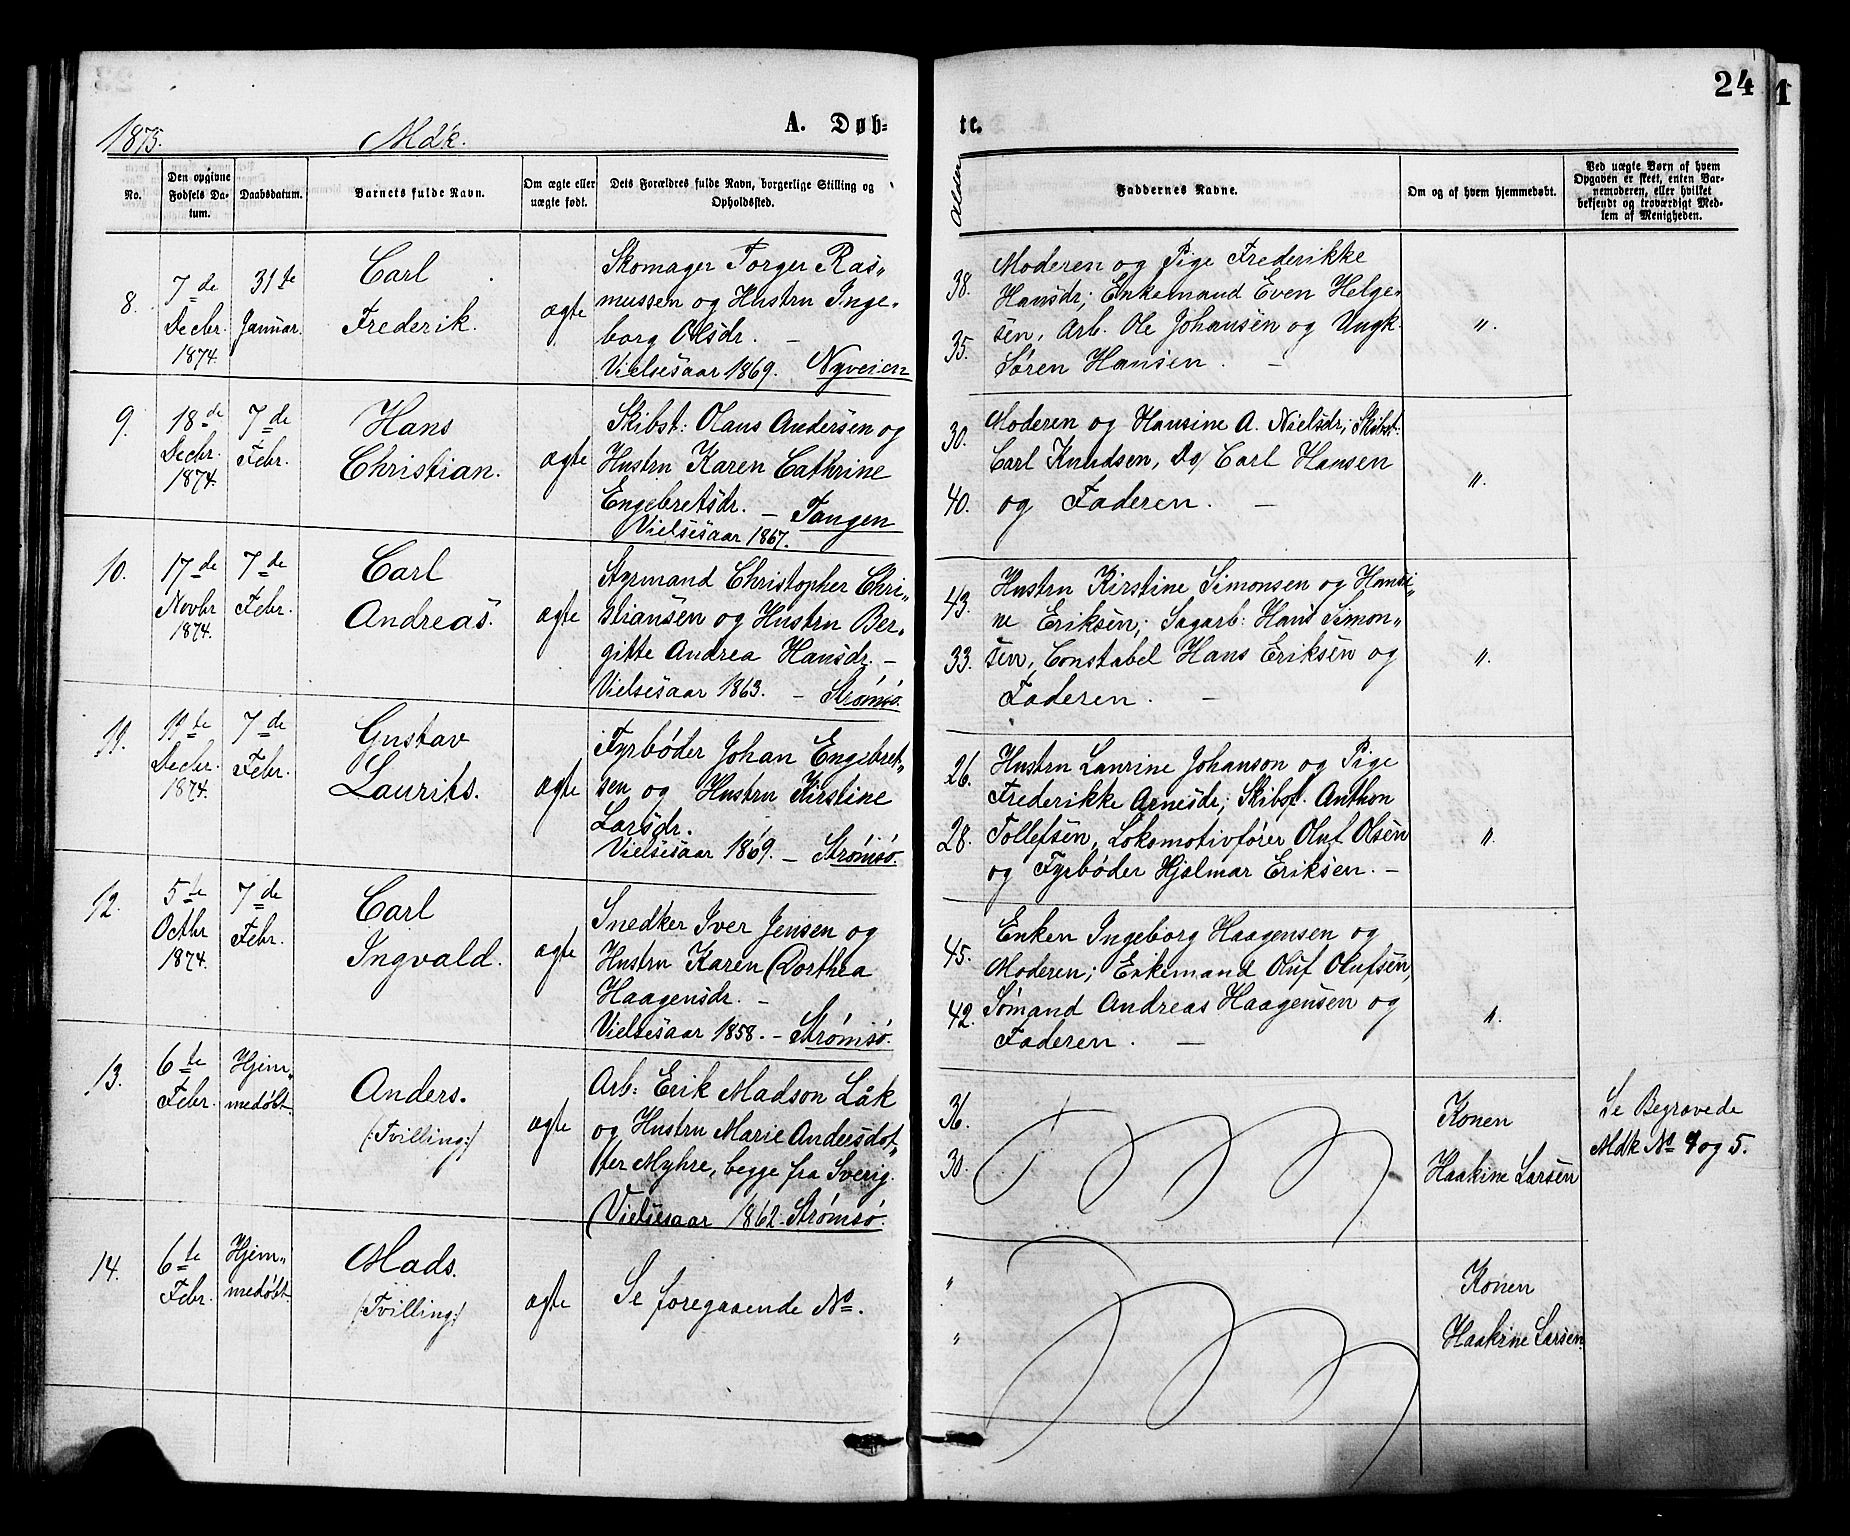 24
1
1875.
Mdk.
A. Døb-
te.
No.
Den opgivne
Fødsels Da-
tum.
Daabsdatum.
Barnets fulde Navn.
Om ægte eller
uægte født.
Dets Forældres fulde Navn, borgerlige Stilling og
Opholdssted.
Alder
Faddernes Navne.
Om og af hvem hjemmedøbt.
Ved uægte Børn af hvem
Opgaven er skeet, enten Bar-
nemoderen, eller hvilket
bekjendt og troværdigt Med-
lem af Menigheden.
8.
7de
Decbr.
1874.
31te
Januar.
Carl
Frederik.
ægte
Skomager Torger Ras„
mussen og Hustru Inge„
borg Olsdr. –
Vielsesaar 1869. Nyveien
38.
35.
Moderen og Pige Frederikke
Hansdr; Enkemand Even Helge„
sen, Arb. Ole Johansen og Ungk.
Søren Hansen. –
„.
9.
18de
Decbr.
1874.
7de
Febr.
Hans
Christian.
ægte
Skibst: Olaus Andersen og
Hustru Karen Cathrine
Engebretsdr. – Tangen
Vielsesaar 1867.
30.
40.
Moderen og Hansine A. Nielsdr; Skibst:
Carl Knudsen, Do/ Carl Hansen
og Faderen. –
„.
10.
17de
Novbr
1874.
7de
Febr.
Carl
Andreas.
ægte
Styrmand Christopher Chri„
stiansen og Hustru Ber„
gitte Andrea Hansdr. –
Vielsesaar 1863. – Strømsø.
43.
33.
Hustru Kirstine Simonsen og Hansi„
ne Eriksen; Sagarb: Hans Simon„
sen, Constabel Hans Eriksen og
Faderen. –
„.
11.
19te
Decbr.
1874.
7de
Febr.
Gustav
Laurits.
ægte
Fyrbøder Johan Engebret„
sen og Hustru Kirstine
Larsdr.
Vielsesaar 1869. – Strømsø.
26.
28.
Hustru Laurine Johanson og Pige
Frederikke Arnesdr; Skibst. Anthon
Tollefsen, Lokomotivfører Oluf Olsen
og Fyrbøder Hjalmar Eriksen. –
„.
12.
5te
Octbr
1874.
7de
Febr.
Carl
Ingvald.
ægte
Snedker Iver Jensen og
Hustru Karen Dorthea
Haagensdr. –
Vielsesaar 1858. – Strømsø.
45.
42.
Enken Ingeborg Haagensen og
Moderen; Enkemand Oluf Olufsen,
Sømand Andreas Haagensen og
Faderen. –
„.
13.
6te
Febr.
Hjem„
medøbt.
Anders.
(:Tvilling:)
ægte
Arb: Erik Madson Låk
og Hustru Marie Andersdot„
ter Myhre, begge fra Sverig.
Vielsesaar 1862. Strømsø.
36.
30.
Konen
Haakine Larsen
Se Begravede
Mdk No 4 og 5.
14.
6te
Febr.
Hjem„
medøbt.
Mads.
(:Tvilling:)
ægte
Se foregaaende No.
„
„
Konen
Haakine Larsen.